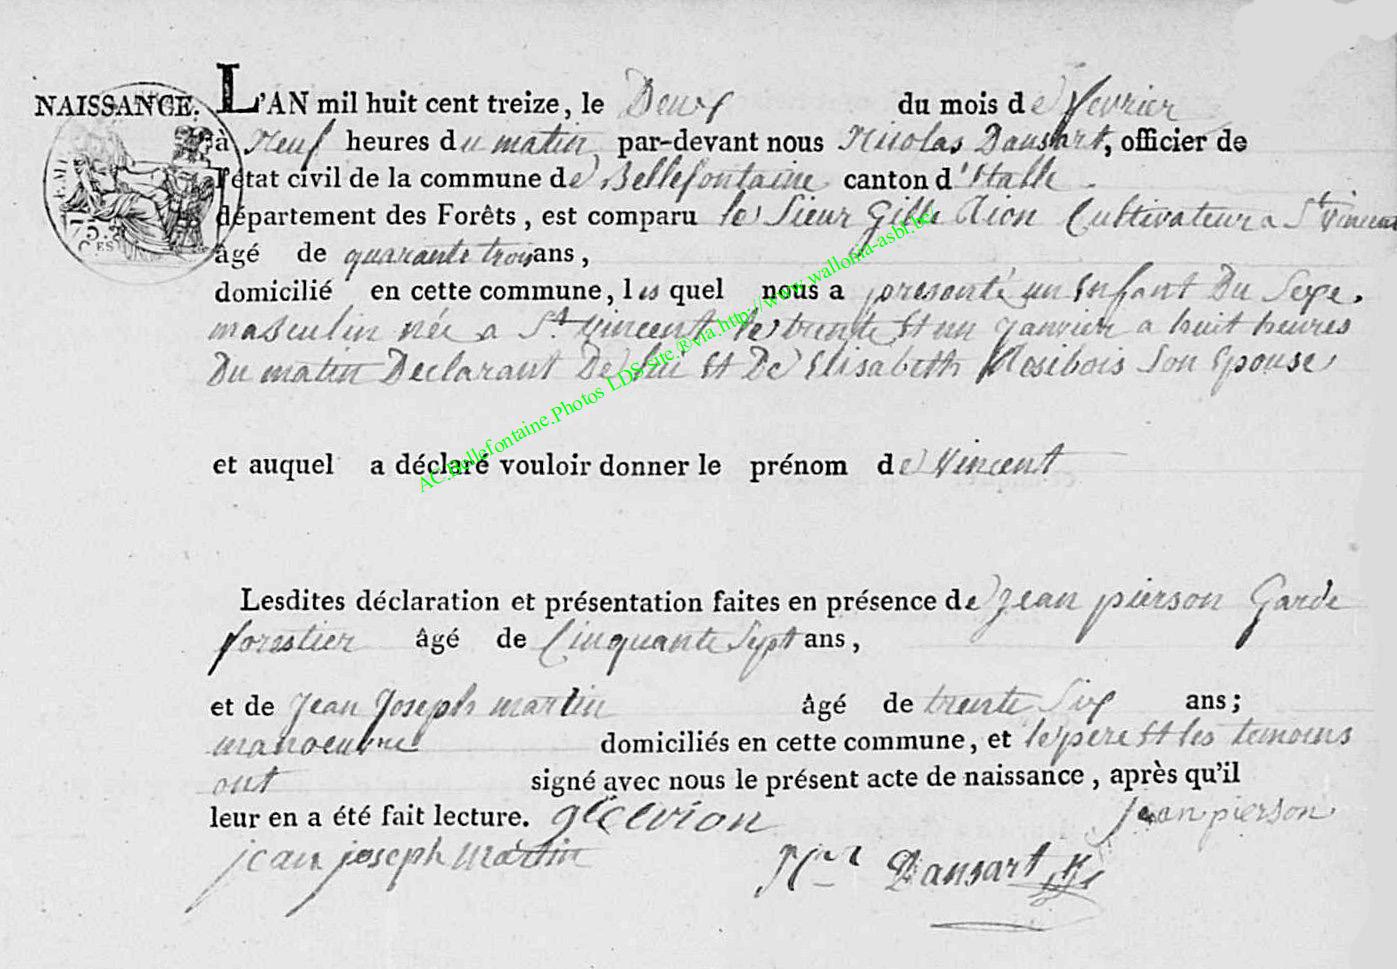 NAISSANCE. L'AN mil huit cent treize, le Deux du mois de fevrier
à Neuf heures du matin par-devant nous Nicolas Dansart, officier de
l'état civil de la commune de Bellefontaine canton d'Etalle
département des Forêts, est comparu le Sieur Gille Cultivateur a St Vincent
âgé de quarante trois ans,
domicilié en cette commune, les quel nous a presenté un Enfant Du Sexe
masculin née a St Vincent le trente Et un Janvier a huit heures
Du matin Declarant De lui Et De Elisabeth Son Epouse
et auquel a déclaré vouloir donner le prénom de Vincent
Lesdites déclaration et présentation faites en présence de Jean pierson Garde
forestier âgé de Cinquante Sept ans,
et de Jean Joseph martin âgé de trente Six ans;
manoeuvre domiciliés en cette commune, et le pere Et les temoins
ont signé avec nous le présent acte de naissance, après qu'il
leur en a été fait lecture. jean pierson
jean joseph martin Dansart
AC.Bellefontaine.Photos LDS site.®via.http://www.wallonia-asbl.be/